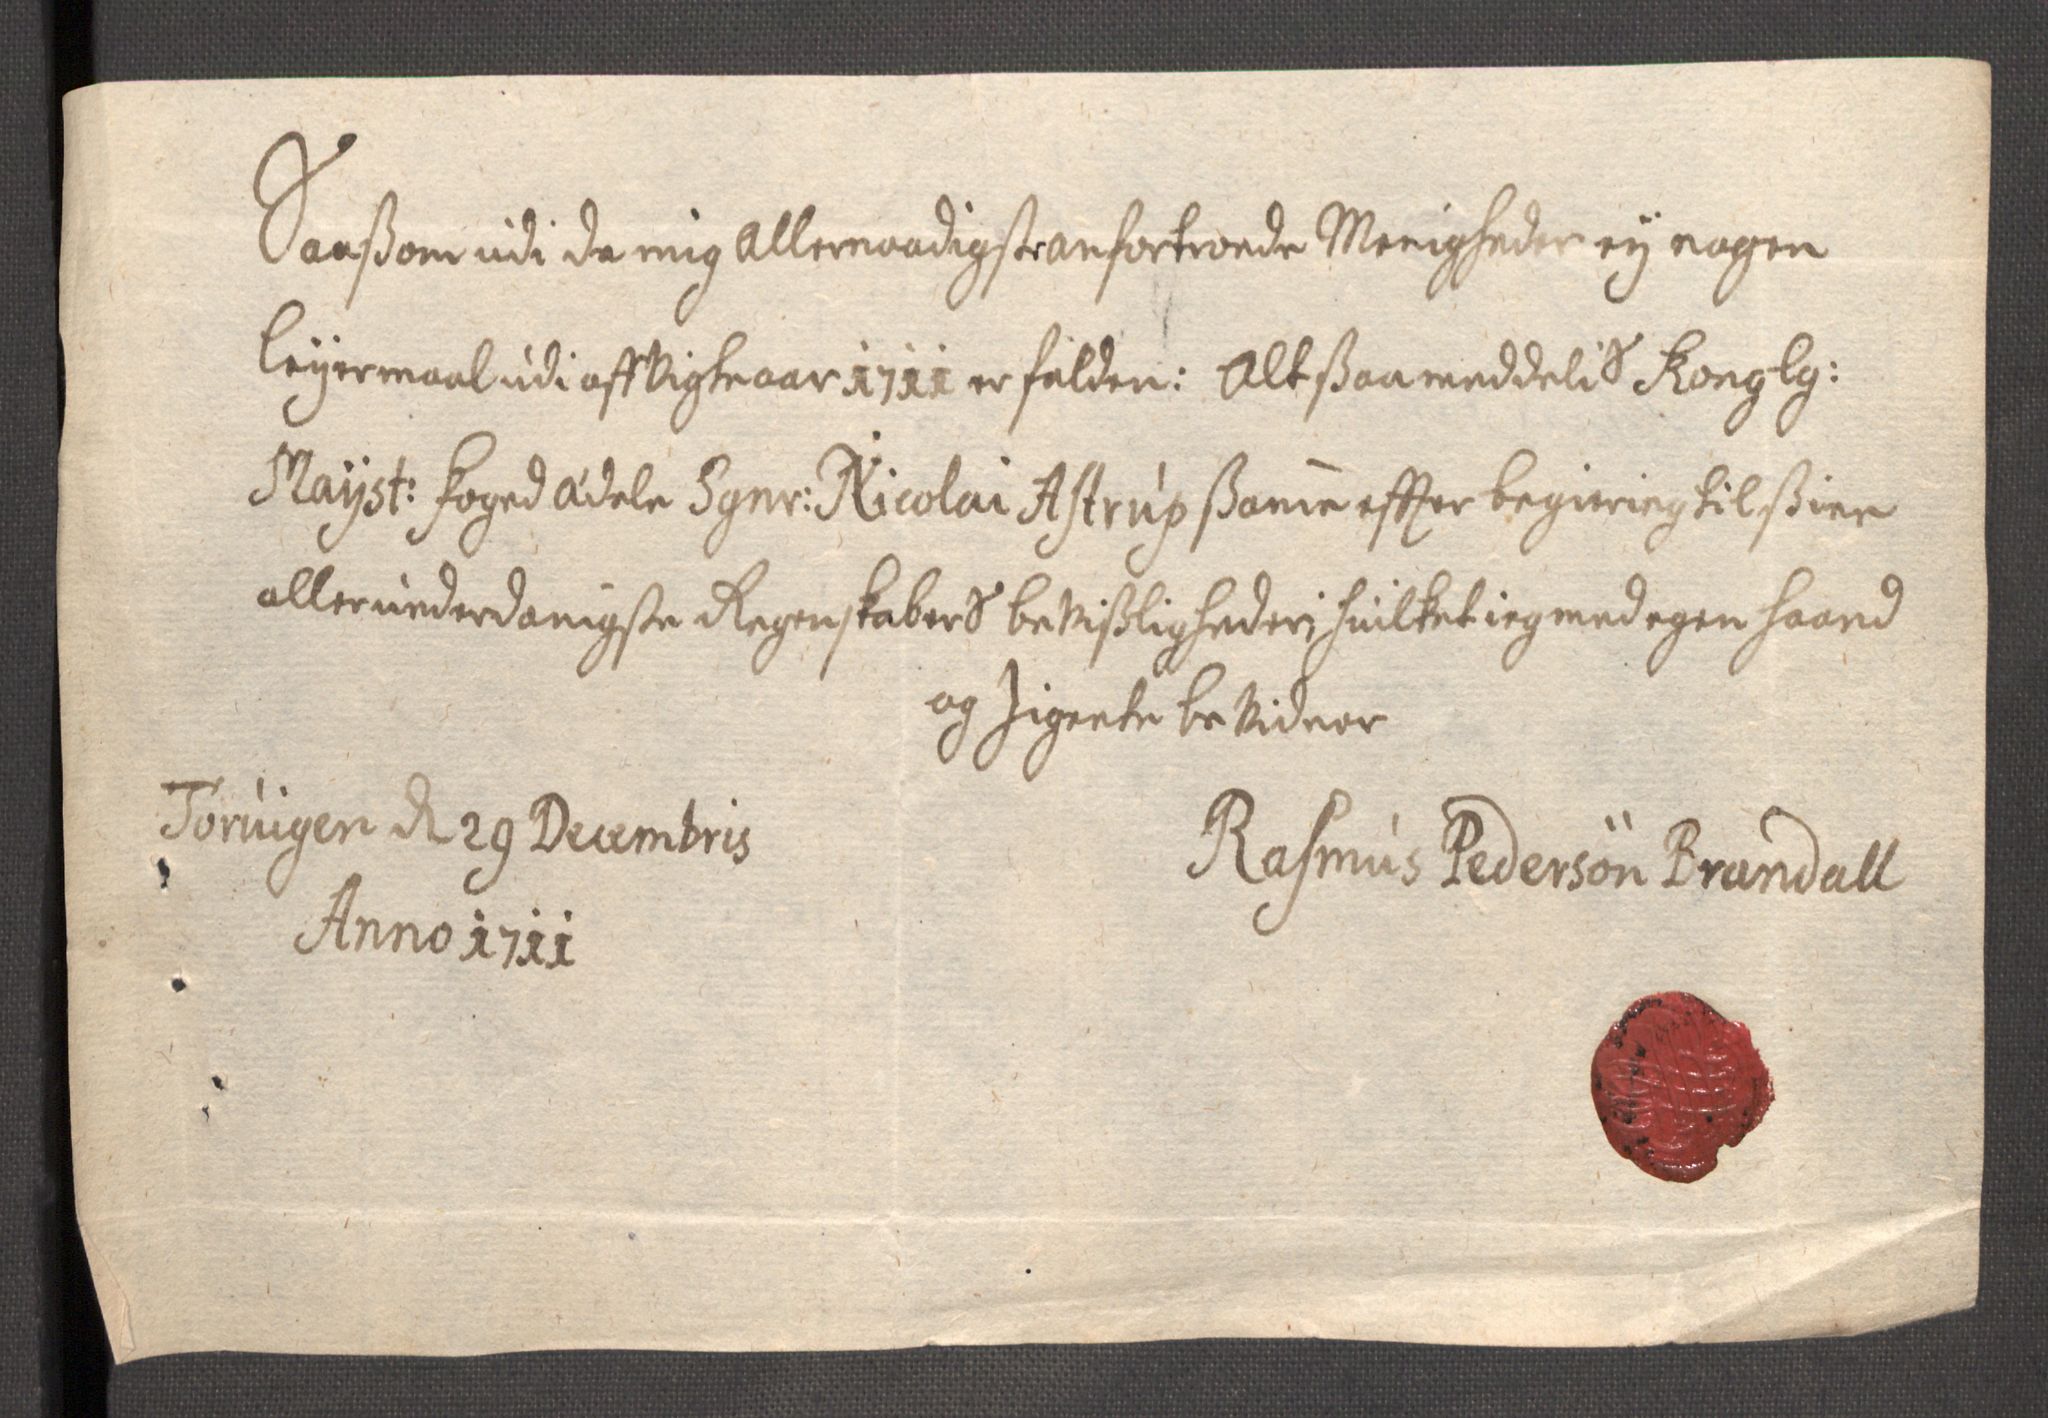 Saaßom udi de mig Allernaadigst anfortroede Menigheder ey nogen
leyermaal udi affvigte aar 1711 er falden: Alt ßaa meddelis Konglg:
Mayst: foged ædele Sgnr: Nicolai Astrup ßame effter begiering til ßine
allerunderdanigste Regenskabers bevißligheder, huilket ieg med egen haand
og Zignete bevidner
Toruigen d 29 Decembris
Anno 1711
Rasmus Pedersøn Brandall